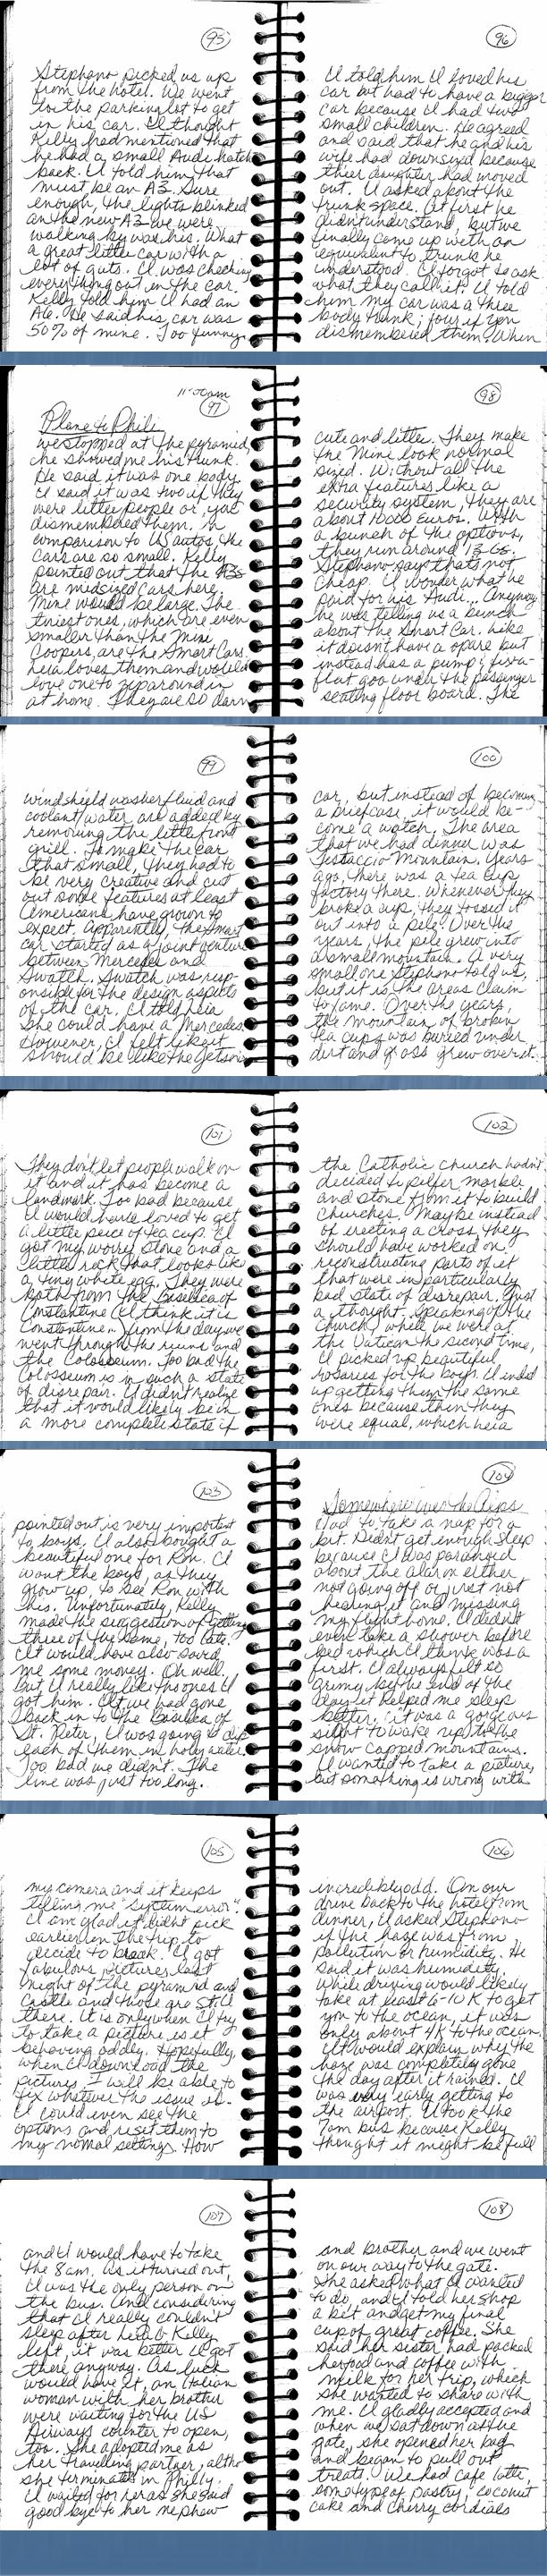 95
Stephano picked us up
from the hotel. We went
to the parking lot to get
in his car. I thought
Kelly had mentioned that
he had a small Audi hatch
back. I told him that
must be an A3. Sure
enough, the lights blinked
and the new A3 we were
walking by was his. What
a great little car with a
lot of guts. I was checking
everything out in the car.
Kelly told him I had an
A6. He said his car was
50% of mine. Too funny.
96
I told him I loved his
car but had to have a bigger
car because I had two
small children. He agreed
and said that he and his
wife had downsized because
thier daughter had moved
out. I asked about the
trunk space. At first he
didn't understand, but we
finally came up with an
equivalent to trunk he
understood. I forgot to ask
what they call it. I told
him my car was a three
body trunk; four if you
dismembered them. When
11:00am
97
Plane to Phili
we stopped at the pyramid,
he showed me his trunk.
He said it was one body.
I said it was two if they
were little people or you
dismembered them. In
comparison to US autos, the
cars are so small. Kelly
pointed out that the A3s
are midsized cars here.
Mine would be large. The
tiniest ones, which are even
smaller than the Mini
Coopers, are the Smart Cars.
heia loves them and would
love one to zip around in
at home. They are so darn
98
cute and little. They make
the Mine look normal
sized. Without all the
extra features like a
security system, they are
about 10000 Euros. With
a bunch of the options,
they run around 13-Gs.
Stephano says that's not
cheap. I wonder what he
paid for his Audi... Anyway
he was telling us a bunch
about the Smart Car. like
it doesn't have a spare but
instead has a pump; fix-a-
flat goo under the passenger
seating floor board. The
99
windshield washer fluid and
coolant/water are added by
removing the little front
grill. To make the car
that small, they had to
be very creative and cut
out some features at least
Americans have grown to
expect. Apparently, the Smart
car started as a joint venture
between Mercedes and
Swatch. Swatch was resp-
onsible for the design aspects
of the car. I told heia
she could have a Mercedes.
However, I felt like it
should be like the Jetsons
100
car, but instead of becoming
a briefcase, it would be-
come a watch. The area
that we had dinner was
Testaccio Mountain. Years
ago, there was a tea cup
factory there. Whenever they
broke a cup, they tossed it
out into a pile. Over the
years, the pile grew into
a small mountain. A very
small one Stephano told us,
but it is the areas claim
to fame. Over the years,
the mountain of broken
tea cups was buried under
dirt and grass grew over it.
101
They don't let people walk on
it and it has become a
landmark. Too bad because
I would have loved to get
a little peice of tea cup. I
got my worry stone and a
little rock that looks like
a tiny white egg. They were
both from the Basilica of
Constantine (I think it is
Constantine) from the day we
went through the ruins and
the Colosseum. Too bad the
Colosseum is in such a state
of disrepair. I didn't realize
that it would likely be in
a more complete state if
102
the Catholic church hadn't
decided to pilfer marble
and stone from it to build
churches. Maybe instead
of erecting a cross, they
should have worked on
reconstructing parts of it
that were in particularly
bad state of disrepair. Just
a thought. Speaking of the
church, while we were at
the Vatican the second time,
I picked up beautiful
rosaries for the boys. I ended
up getting them the same
ones because then they
were equal, which heia
103
pointed out is very important
to boys. I also bought a
beautiful one for Ron. I
want the boys, as they
grow up, to see Ron with
this. Unfortunately, Kelly
made the suggestion of getting
three of the same, too late.
It would have also saved
me some money. Oh well,
but I really like the ones I
got him. If we had gone
back in to the Basilica of
St. Peter, I was going to dip
each of them in holy water.
Too bad we didn't. The
line was just too long.
104
Somewhere over the Alps
Had to take a nap for a
bit. Didn't get enough sleep
because I was paranoid
about the alarm either
not going off or just not
hearing it and missing
my flight home. I didn't
even take a shower before
bed which I think was a
first. I always felt so
grimy by the end of the
day it helped me sleep
better. It was a gorgeous
sight to wake up to the
snow capped mountains.
I wanted to take a picture,
but something is wrong with
105
my camera and it keeps
telling me "system error".
I am glad it didn't pick
earlier in the trip, to
decide to break. I got
fabulous pictures last
night of the pyramid and
Castle and those are still
there. It is only when I try
to take a picture is it
behaving oddly. Hopefully,
when I download the
pictures, I will be able to
fix whatever the issue is.
I could even see the
options and reset them to
my normal settings. How
106
incredibly odd. On our
drive back to the hotel from
dinner, I asked Stephano
if the haze was from
pollution or humidity. He
said it was humidity.
While driving would likely
take at least 6-10 K to get
you to the ocean, it was
only about 4K to the ocean.
It would explain why the
haze was completely gone
the day after it rained. I
was very early getting to
the airport. I took the
7am bus because Kelly
thought it might be full
107
and I would have to take
the 8am. As it turned out,
I was the only person on
the bus. And considering
that I really couldn't
sleep after heia & Kelly
left, it was better I got
there anyway. As luck
would have it, an Italian
woman with her brother
were waiting for the US
Airways counter to open,
too. She adopted me as
her travelling partner, altho
she terminates in Philly.
I waited for her as she said
good bye to her nephew
108
and brother and we went
on our way to the gate.
She asked what I wanted
to do, and I told her shop
a bit and get my final
cup of great coffee. She
said her sister had packed
her food and coffee with
milk for her trip, which
she wanted to share with
me. I gladly accepted and
when we sat down at the
gate, she opened her bag
and began to pull out
treats. We had cafe latte,
some type of pastry, coconut
cake and cherry cordials